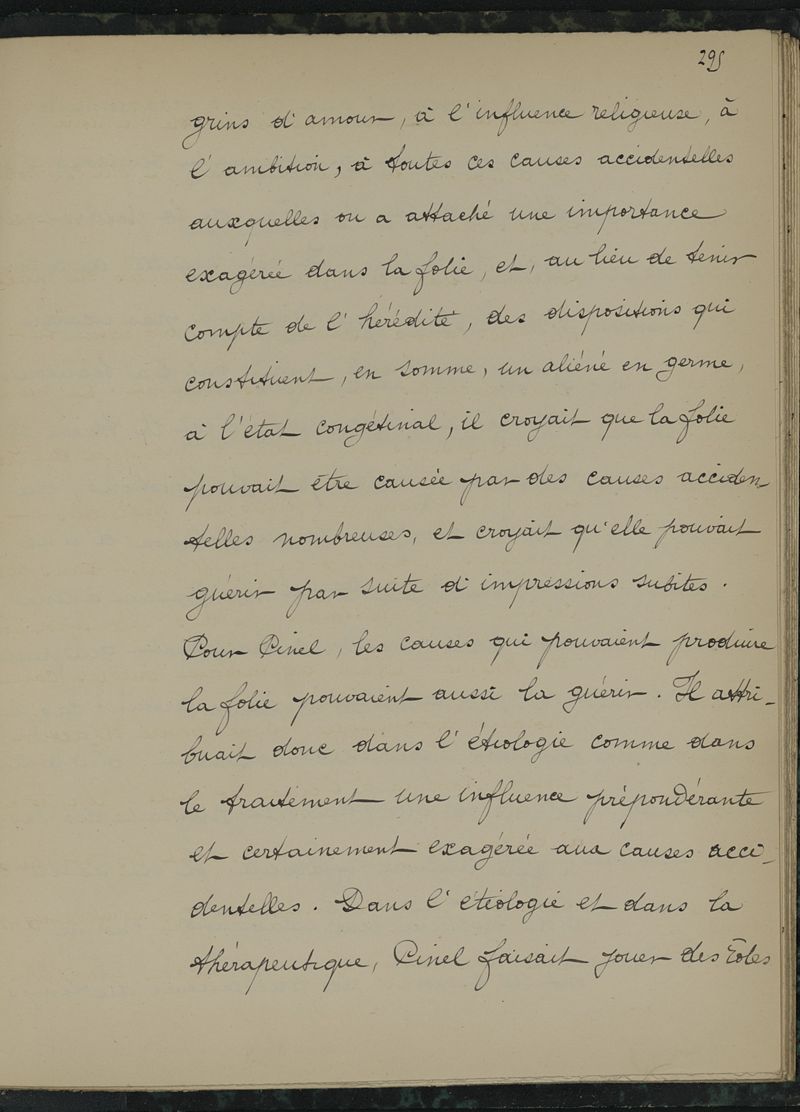 295
grins d'amour, à l'influence religieuse, à
l'ambition, à toutes ces causes accidentelles
auxquelles on a attaché une importance
exagérée dans la folie, et, au lieu de tenir
compte de l'hérédité, des dispositions qui
constituent, en somme, un aliéné en germe,
à l'état congétinal, il croyait que la folie
pouvait être causée par des causes acciden-
telles nombreuses, et croyait qu'elle pouvait
guérir par suite d'impressions subites.
Pour Pinel, les causes qui pouvaient produire
la folie pouvaient aussi la guérir. Il attri-
buait donc dans l'étiologie comme dans
le traitement une influence prépondérante
et certainement exagérée aux causes acci-
dentelles. Dans l'étiologie et dans la
thérapeutique, Pinel faisait jouer des rôles